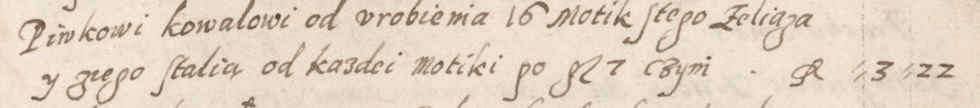 Piwkowi kowalowi od vrobienia 16 Motik stego Zeliaza
y zięgo stalią od kazdei Motiki po gr 7 czyni . fl ii3 ii22